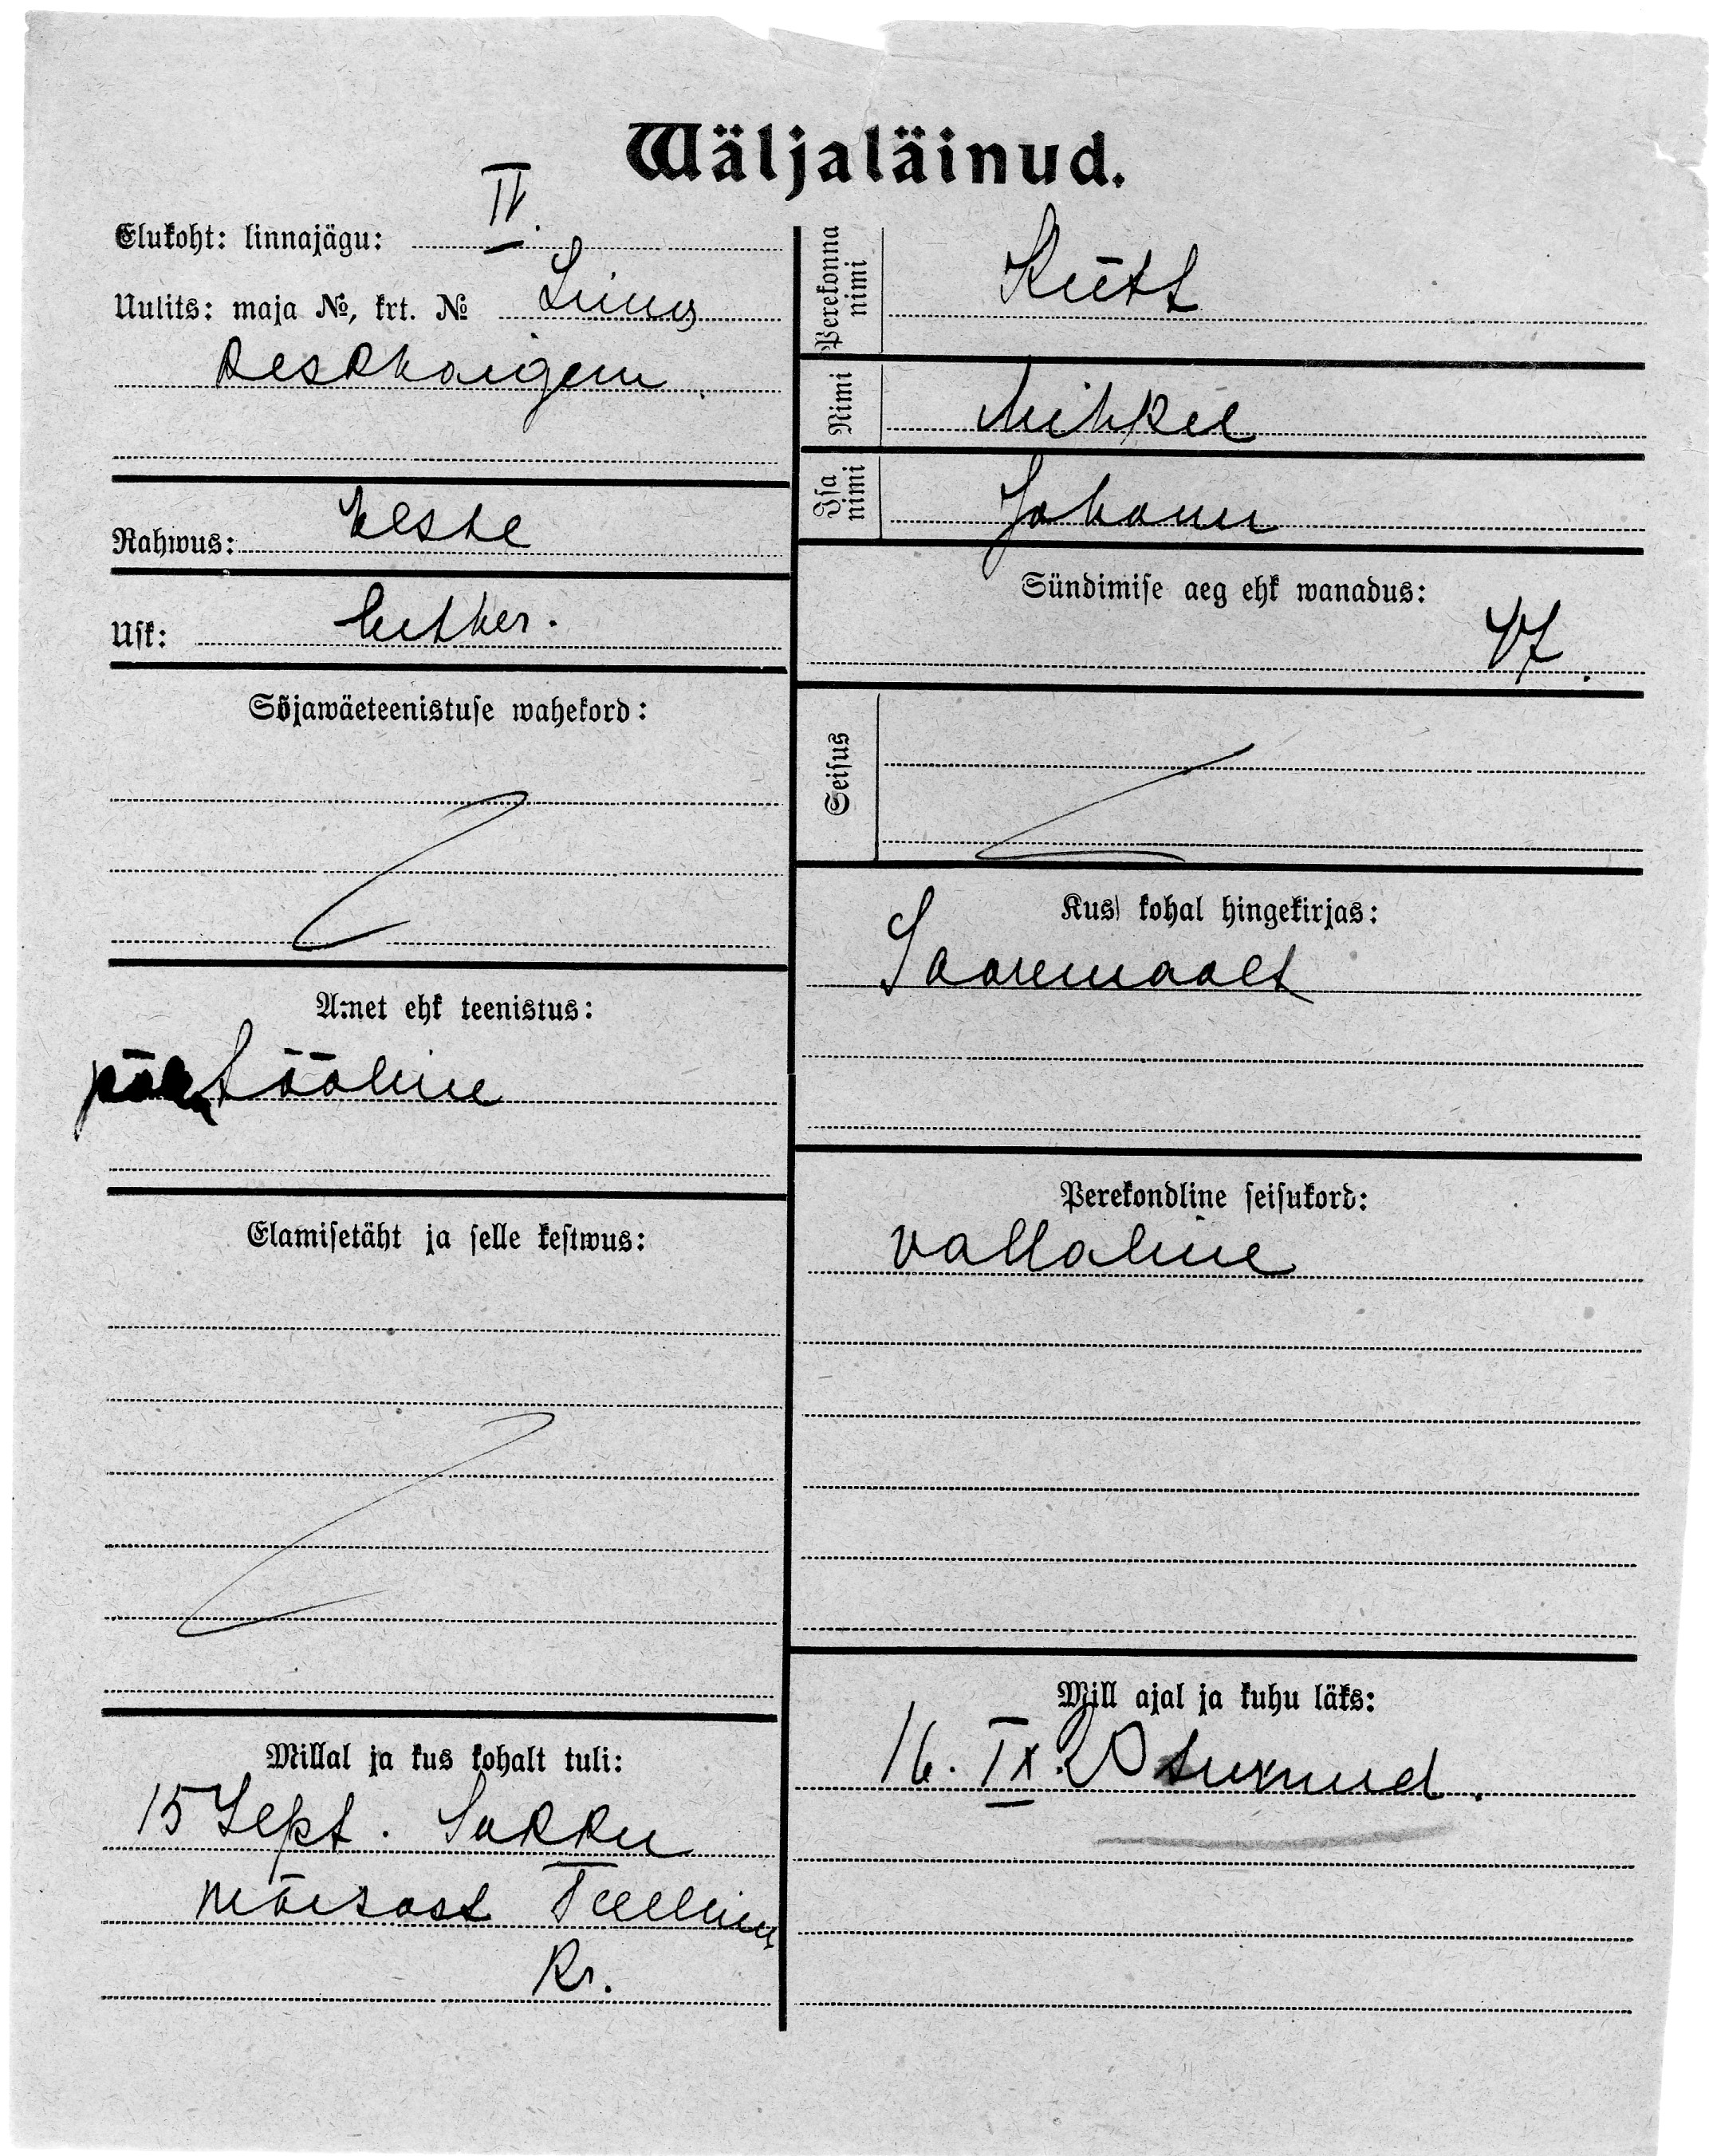 Wäljaläinud.
Elukoht: linnajägu: IV.
Uulits: maja №, krt. № Linna
keskhaigem.
Rahwus: Eesti
Usk: luther.
Sõjawäeteenistuse wahekord:
Amet ehk teenistus:
tööline
Elamisetäht ja selle kestwus:
Millal ja kus kohalt tuli:
15 Sept. Sakku
mõisast Tallinna
kr.
Perekonna nimi Kütt
Nimi Mihkel
Isa nimi Johann
Sündimise aeg ehk wanadus:
47.
Seisus
Kus kohal hingekirjas:
Saaremaalt
Perekondline seisukord:
vallaline
Mill ajal ja kuhu läks:
16. IX. 20 surnud.